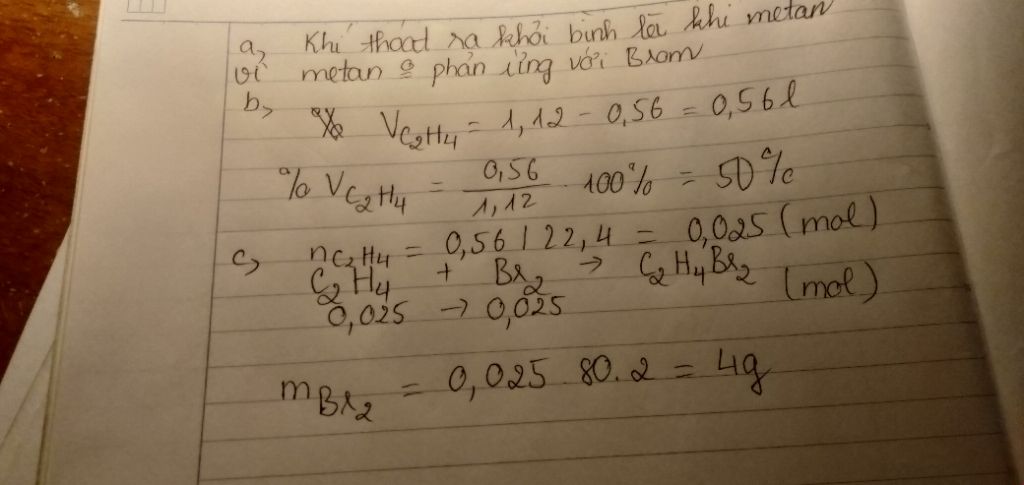 a, Khí thoát ra khỏi bình là khí metan
vì metan o phản ứng với Brom
b,
V C₂H₄ = 1,12 - 0,56 = 0,56 l
% V C₂H₄ = 0,56 / 1,12 . 100% = 50%
c, n C₂H₄ = 0,56 / 22,4 = 0,025 (mol)
C₂H₄ + Br₂ → C₂H₄Br₂
0,025 → 0,025 (mol)
m Br₂ = 0,025 . 80 . 2 = 4g